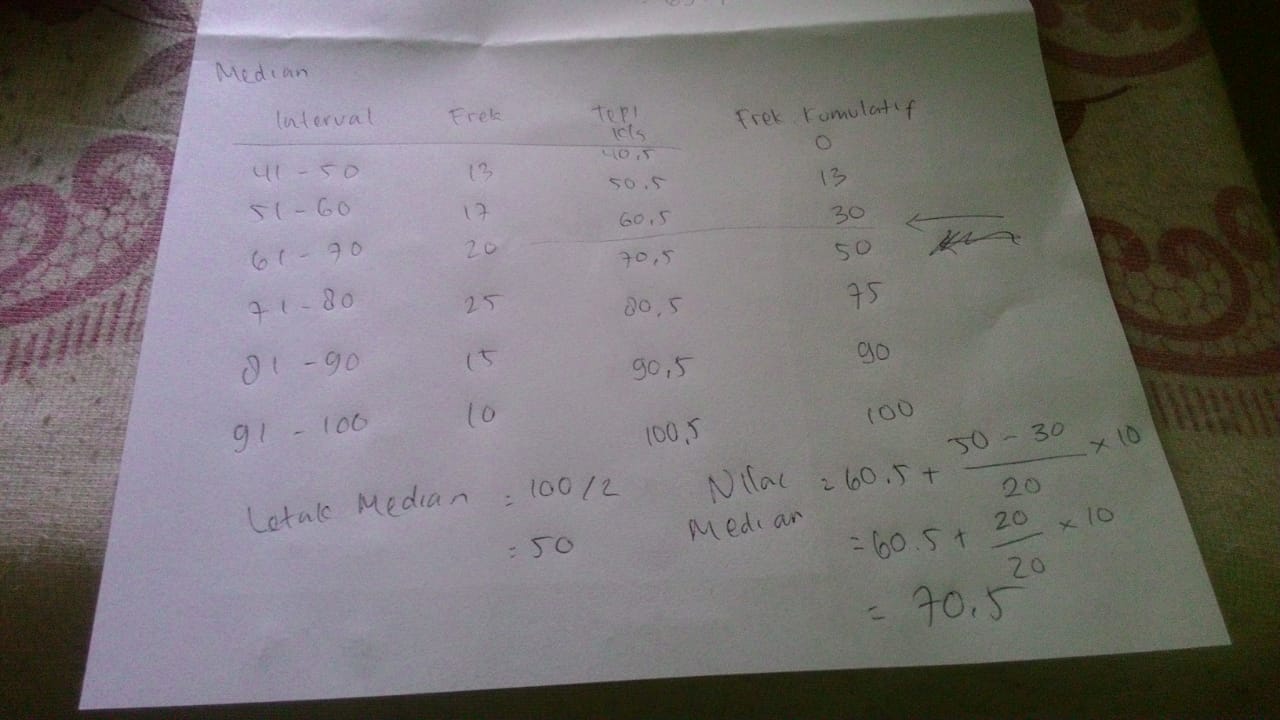 Median
Interval Frek Tepi Kls Frek Kumulatif
40,5 0
41 - 50 13 50.5 13
51 - 60 17 60.5 30
61 - 70 20 70,5 50
71 - 80 25 80.5 75
81 - 90 15 90,5 90
91 - 100 10 100,5 100
Letak Median = 100/2
= 50
Nilai Median = 60.5 + 50 - 30 / 20 × 10
= 60.5 + 20 / 20 × 10
= 70.5